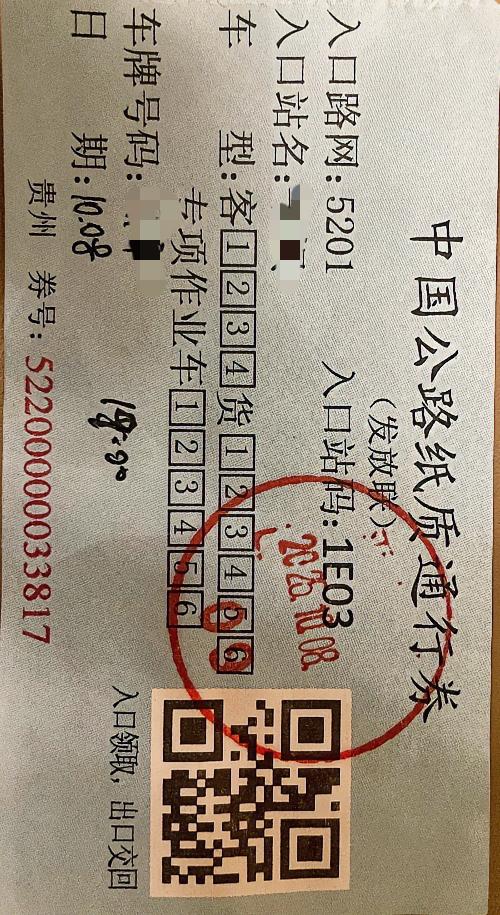 中国公路纸质通行券
（发放联）
入口路网：5201 入口站码：1E03
入口站名：
车 型：客1234货123456
专项作业车123456
车牌号码：
日 期：10.08 18:00
贵州 券号：5220000033817
入口领取，出口交回
2020.10.08